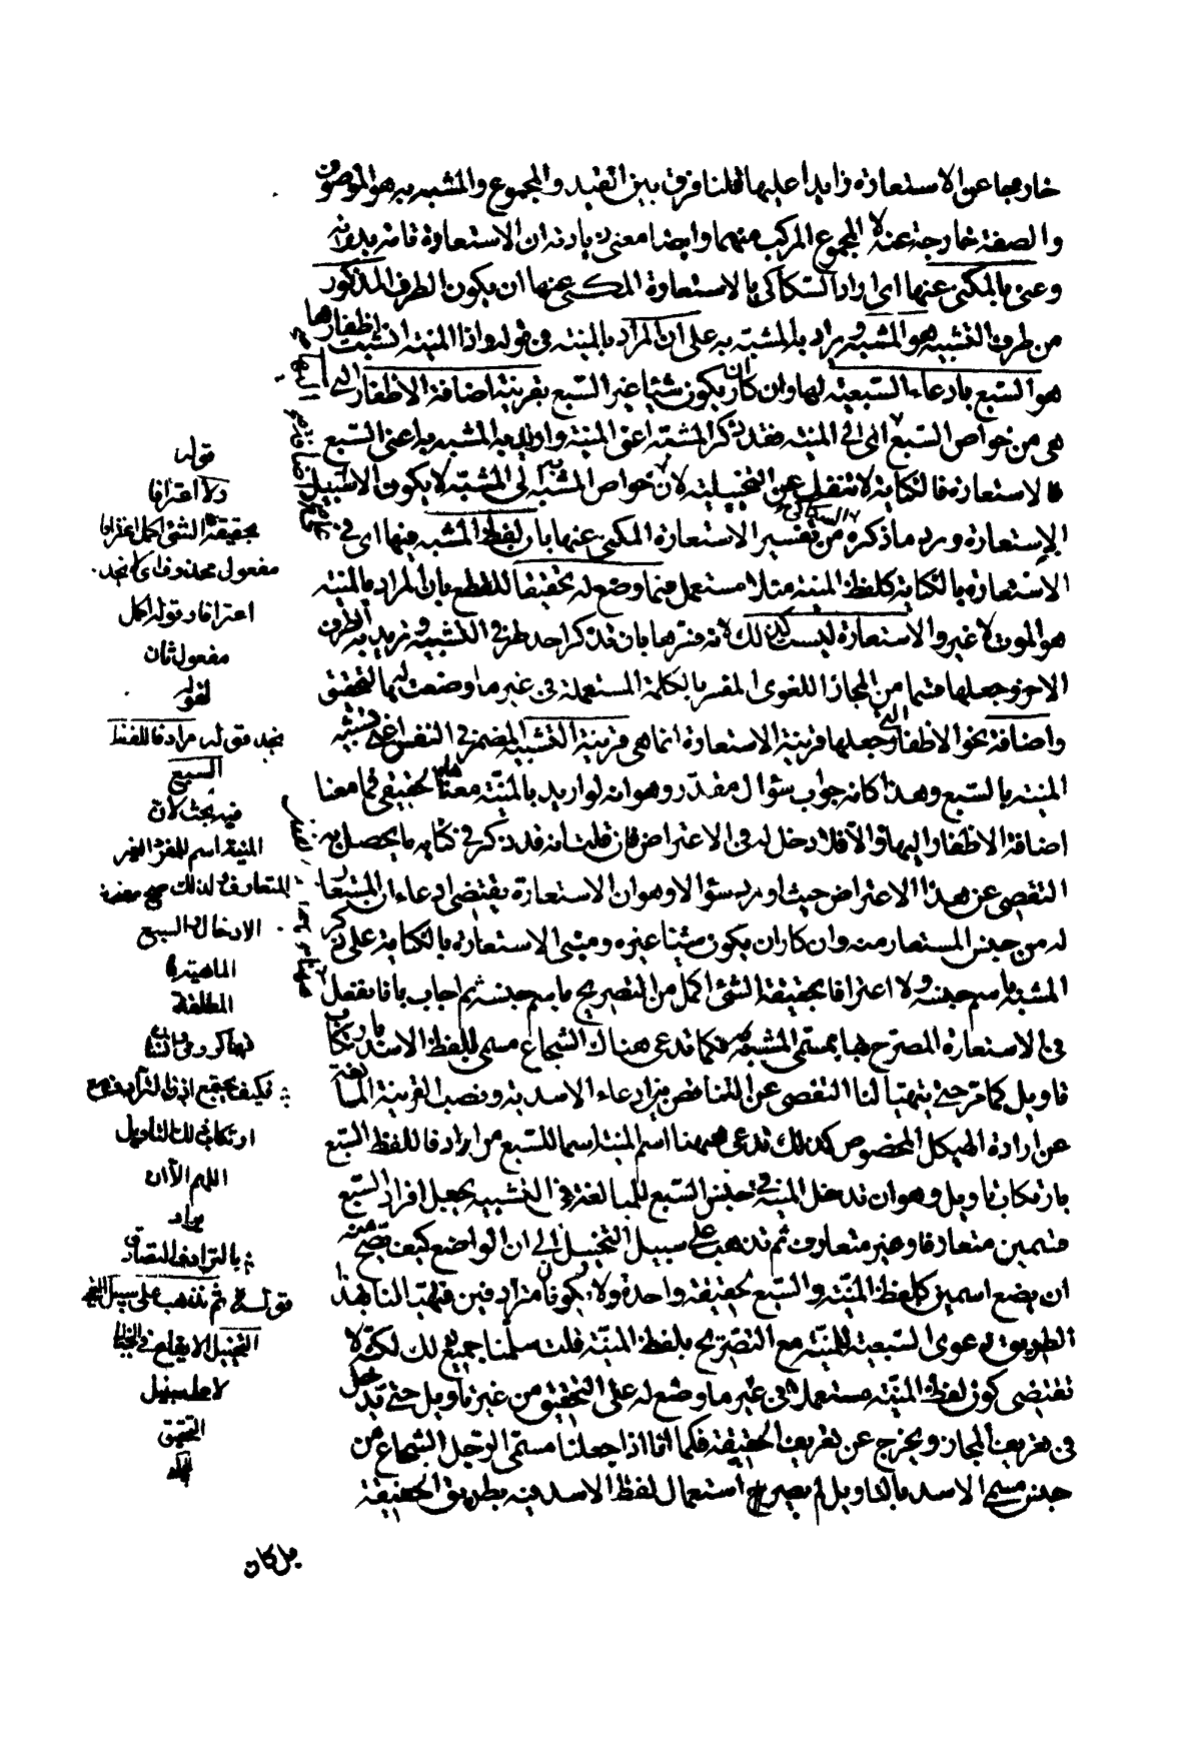 خارجا عن الاستعارة زايدا عليها قلنا فرق بين القيد والمجموع والمشبه به هو الموصوف
والصفة خارجة عنه لا المجموع المركب منهما وايضا معنى زيادته ان الاستعارة تامة بدونه
وعنى بالمكنى عنها اى اراد السكاكى بالاستعارة المكنى عنها ان يكون الطرف المذكور
من طرفى التشبيه هو المشبه ويراد به المشبه به على ان المراد بالمنية فى قوله واذا المنية انشبت اظفارها
هو السبع بادعاء السبعية لها وان كان يكون شيئا غير السبع بقرينة اضافة الاظفار التى
هى من خواص السبع الى المنية فقد ذكر المشبه اعنى المنية واريد به المشبه به اعنى السبع
فالاستعارة بالكناية لا تنفك عن التخييلية لان خواص المشبه به الى المشبه لا يكون الا سبيل
الاستعارة ورد ما ذكره السكاكى من تفسير الاستعارة المكنى عنها بان لفظ المشبه فيها اى فى
الاستعارة بالكناية كلفظ المنية مثلا مستعمل فيما وضع له تحقيقا للقطع بان المراد بالمنية
هو الموت لا غير والاستعارة ليست كذلك لانه فسرها بان تذكر احد طرفى التشبيه وتريد به الطرف
الاخر وجعلها قسما من المجاز اللغوى المفسر بالكلمة المستعملة فى غير ما وضعت له بالتحقيق
واضافة نحو الاظفار التى جعلها قرينة الاستعارة انما هى قرينة التشبيه المضمر فى النفس اعنى تشبيه
المنية بالسبع وهذا كانه جواب سؤال مقدر وهو انه لو اريد بالمنية معناها الحقيقى فما معنى
اضافة الاظفار اليها والا فلا دخل له فى الاعتراض فان قلت انه قد ذكر فى كتابه ما يحصل به
التفصى عن هذا الاعتراض حيث اورد سؤالا وهو ان الاستعارة يقتضى ادعاء ان المستعار
له من جنس المستعار منه وان كان ان يكون شيئا غيره ومبنى الاستعارة بالكناية على ذكر
المشبه باسم جنسه ولا اعترافا بحقيقة الشئ اكمل من التصريح باسم جنسه ثم اجاب بانا نفعل
فى الاستعارة المصرح بها بمسمى المشبه به فكما ندعى هناك الشجاع مسمى للفظ الاسد بارتكاب
تاويل كما مر حتى يتهيأ لنا التفصى عن التناقض بين ادعاء الاسدية ونصب القرينة المانعة
عن ارادة الهيكل المخصوص كذلك ندعى ههنا اسم المنية اسما للسبع مرادفا للفظ السبع
بارتكاب تاويل وهو ان ندخل المنية فى جنس السبع للمبالغة فى التشبيه بجعل افراد السبع
قسمين متعارفا وغير متعارف ثم نذهب على سبيل التخييل الى ان الواضع كيف يصح منه
ان يضع اسمين كلفظ المنية والسبع لحقيقة واحدة ولا يكونان مترادفين فتهيأ لنا بهذا
الطريق دعوى السبعية للمنية مع التصريح بلفظ المنية قلت سلمنا جميع ذلك لكنه لا
يقتضى كون لفظ المنية مستعملا فى غير ما وضع له على التحقيق من غير تاويل حتى يدخل
فى تعريف المجاز ويخرج عن تعريف الحقيقة فكما انا اذا جعلنا مسمى الرجل الشجاع من
جنس مسمى الاسد بالتاويل لم يصر استعمال لفظ الاسد فيه بطريق الحقيقة
بل كان
قوله
ولا اعترافا
بحقيقة الشئ اكمل اعترافا
مفعول محذوف اى نجد
اعترافا وقوله اكمل
مفعول ثان
لقوله
نجد قوله مرادفا للفظ
السبع
فيه بحث لان
المنية اسم للفرد الغير
المتعارف
الادخال السبع
الماهية
المطلقة
ارتكاب ذلك التاويل
اللهم الا ان
يراد
بالترادف التصادق
قوله ثم نذهب على سبيل التخييل
التخييل الايقاع فى الخيال
لا على سبيل
التحقيق